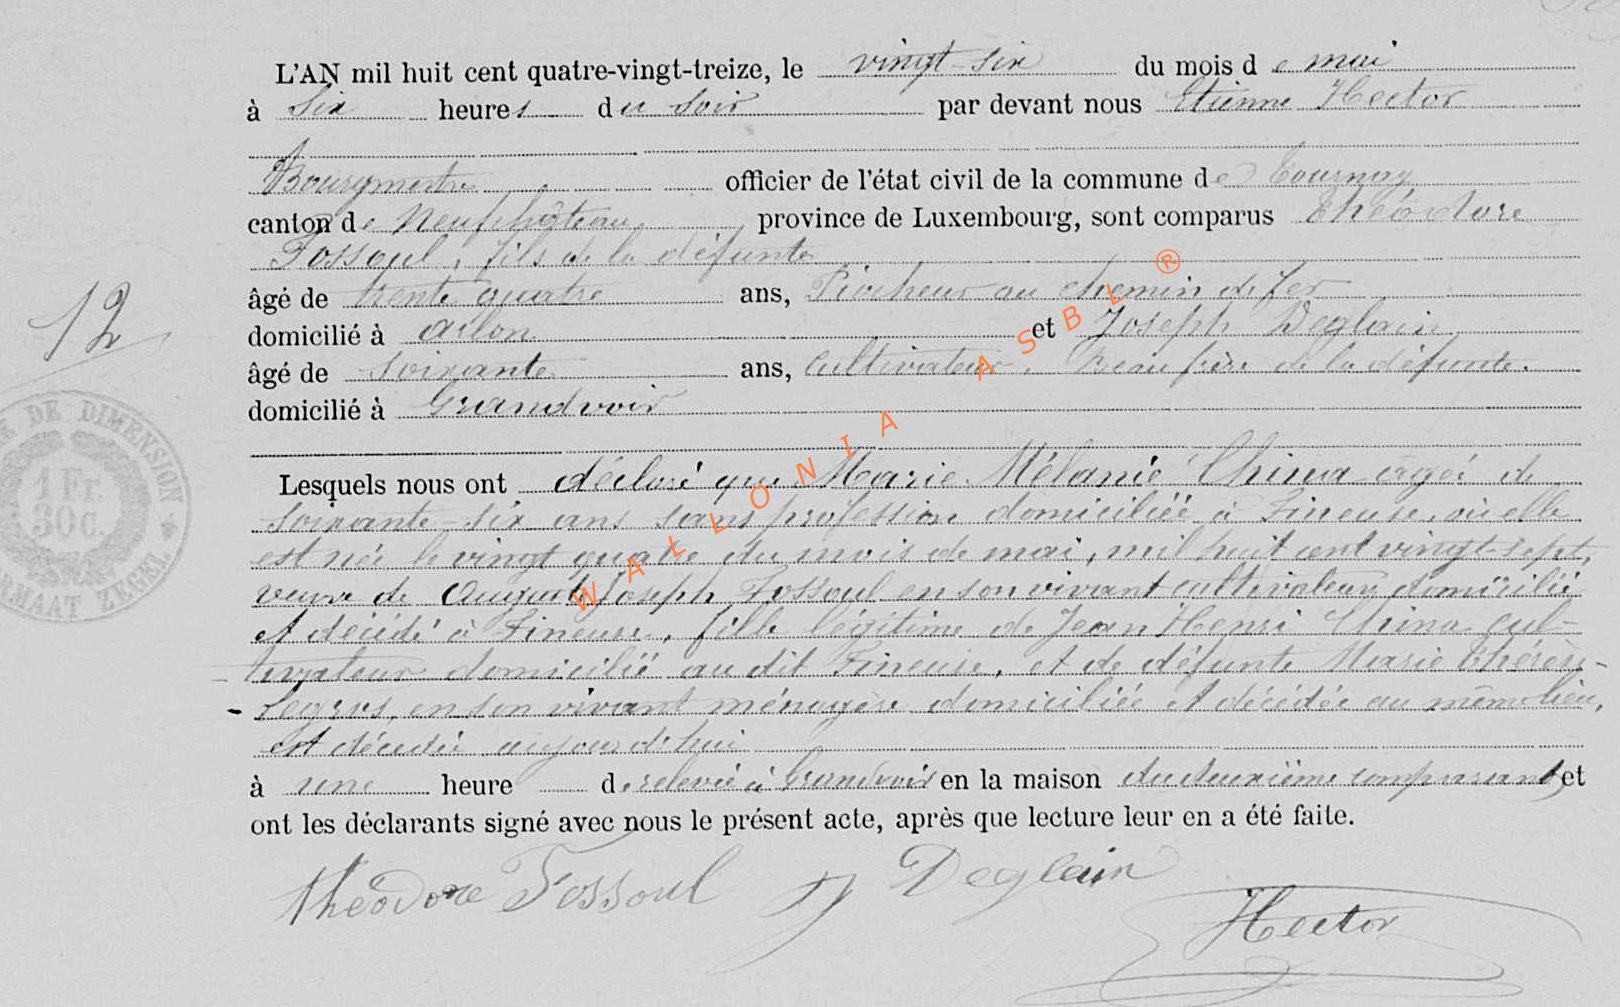 L'AN mil huit cent quatre-vingt-treize, le vingt-six du mois de mai
à six heures du soir par devant nous Etienne Hector
Bourgmestre officier de l'état civil de la commune de Tournay
canton de Neufchâteau province de Luxembourg, sont comparus Théodore
Fossoul, fils de la défunte
âgé de trente quatre ans, Piocheur au chemin de fer
domicilié à Arlon et Joseph Deglain
âgé de soixante ans, Cultivateur, Beau frère de la défunte.
domicilié à Grandvoir
12
Lesquels nous ont déclaré que Marie Mélanie China agée de
soixante-six ans sans profession domiciliée à Fineuse, où elle
est née le vingt quatre du mois de mai, mil huit cent vingt-sept,
veuve de Auguste Joseph Fossoul en son vivant cultivateur domicilié
et décédé à Fineuse, fille légitime de Jean Henri China cul-
tivateur domicilié au dit Fineuse, et de défunte Marie Thérèse
Legros, en son vivant ménagère domiciliée et décédée au même lieu,
est décédée aujourd'hui
à une heure de relevée à Grandvoir en la maison du deuxième comparant, et
ont les déclarants signé avec nous le présent acte, après que lecture leur en a été faite.
théodore Fossoul J Deglain
Hector
DE DIMENSION
1 Fr.
30 C.
ZEGEL
WALLONIA ASBL ®